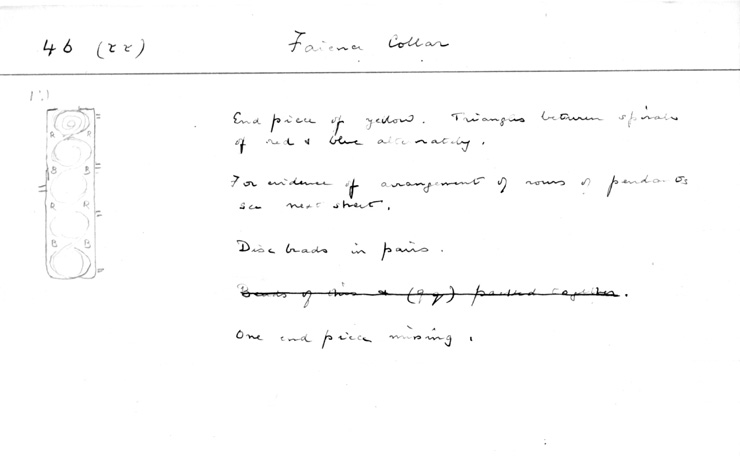 46 (rr) Faience Collar
1:1
R R
B B
R R
B B
End piece of yellow. Triangles between spirals
of red & blue alternately.
For evidence of arrangement of rows of pendants
see next sheet.
Disc beads in pairs.
Beads of this & (qq) packed together.
One end piece missing.